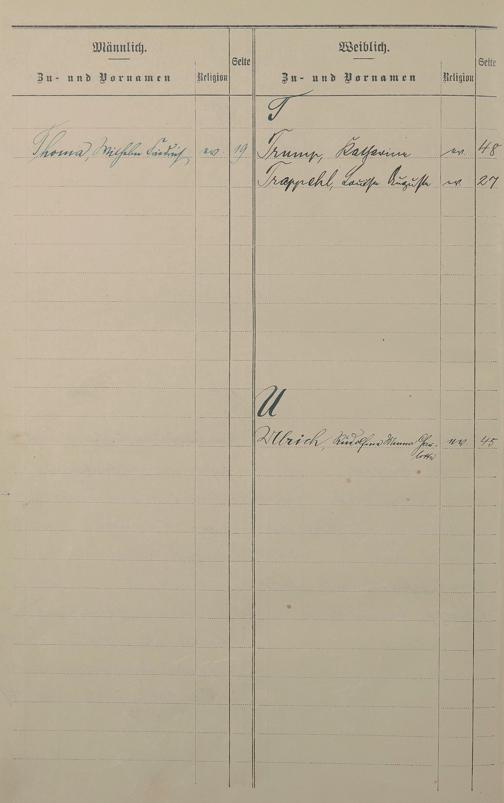 Männlich.
Zu- und Vornamen
Religion
Seite
Weiblich.
Zu- und Vornamen
Religion
Seite
T
Thoma, Wilhelm Friedrich ev 19
Trump, Katharina ev. 48
Trappehl, Louise Auguste ev 27
U
Ulrich, Rudolfine Char-
lotte ev 45